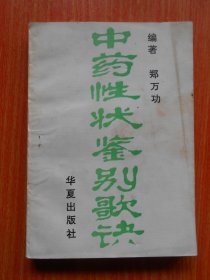 编著 郑万功
中药性状鉴别歌诀
华夏出版社